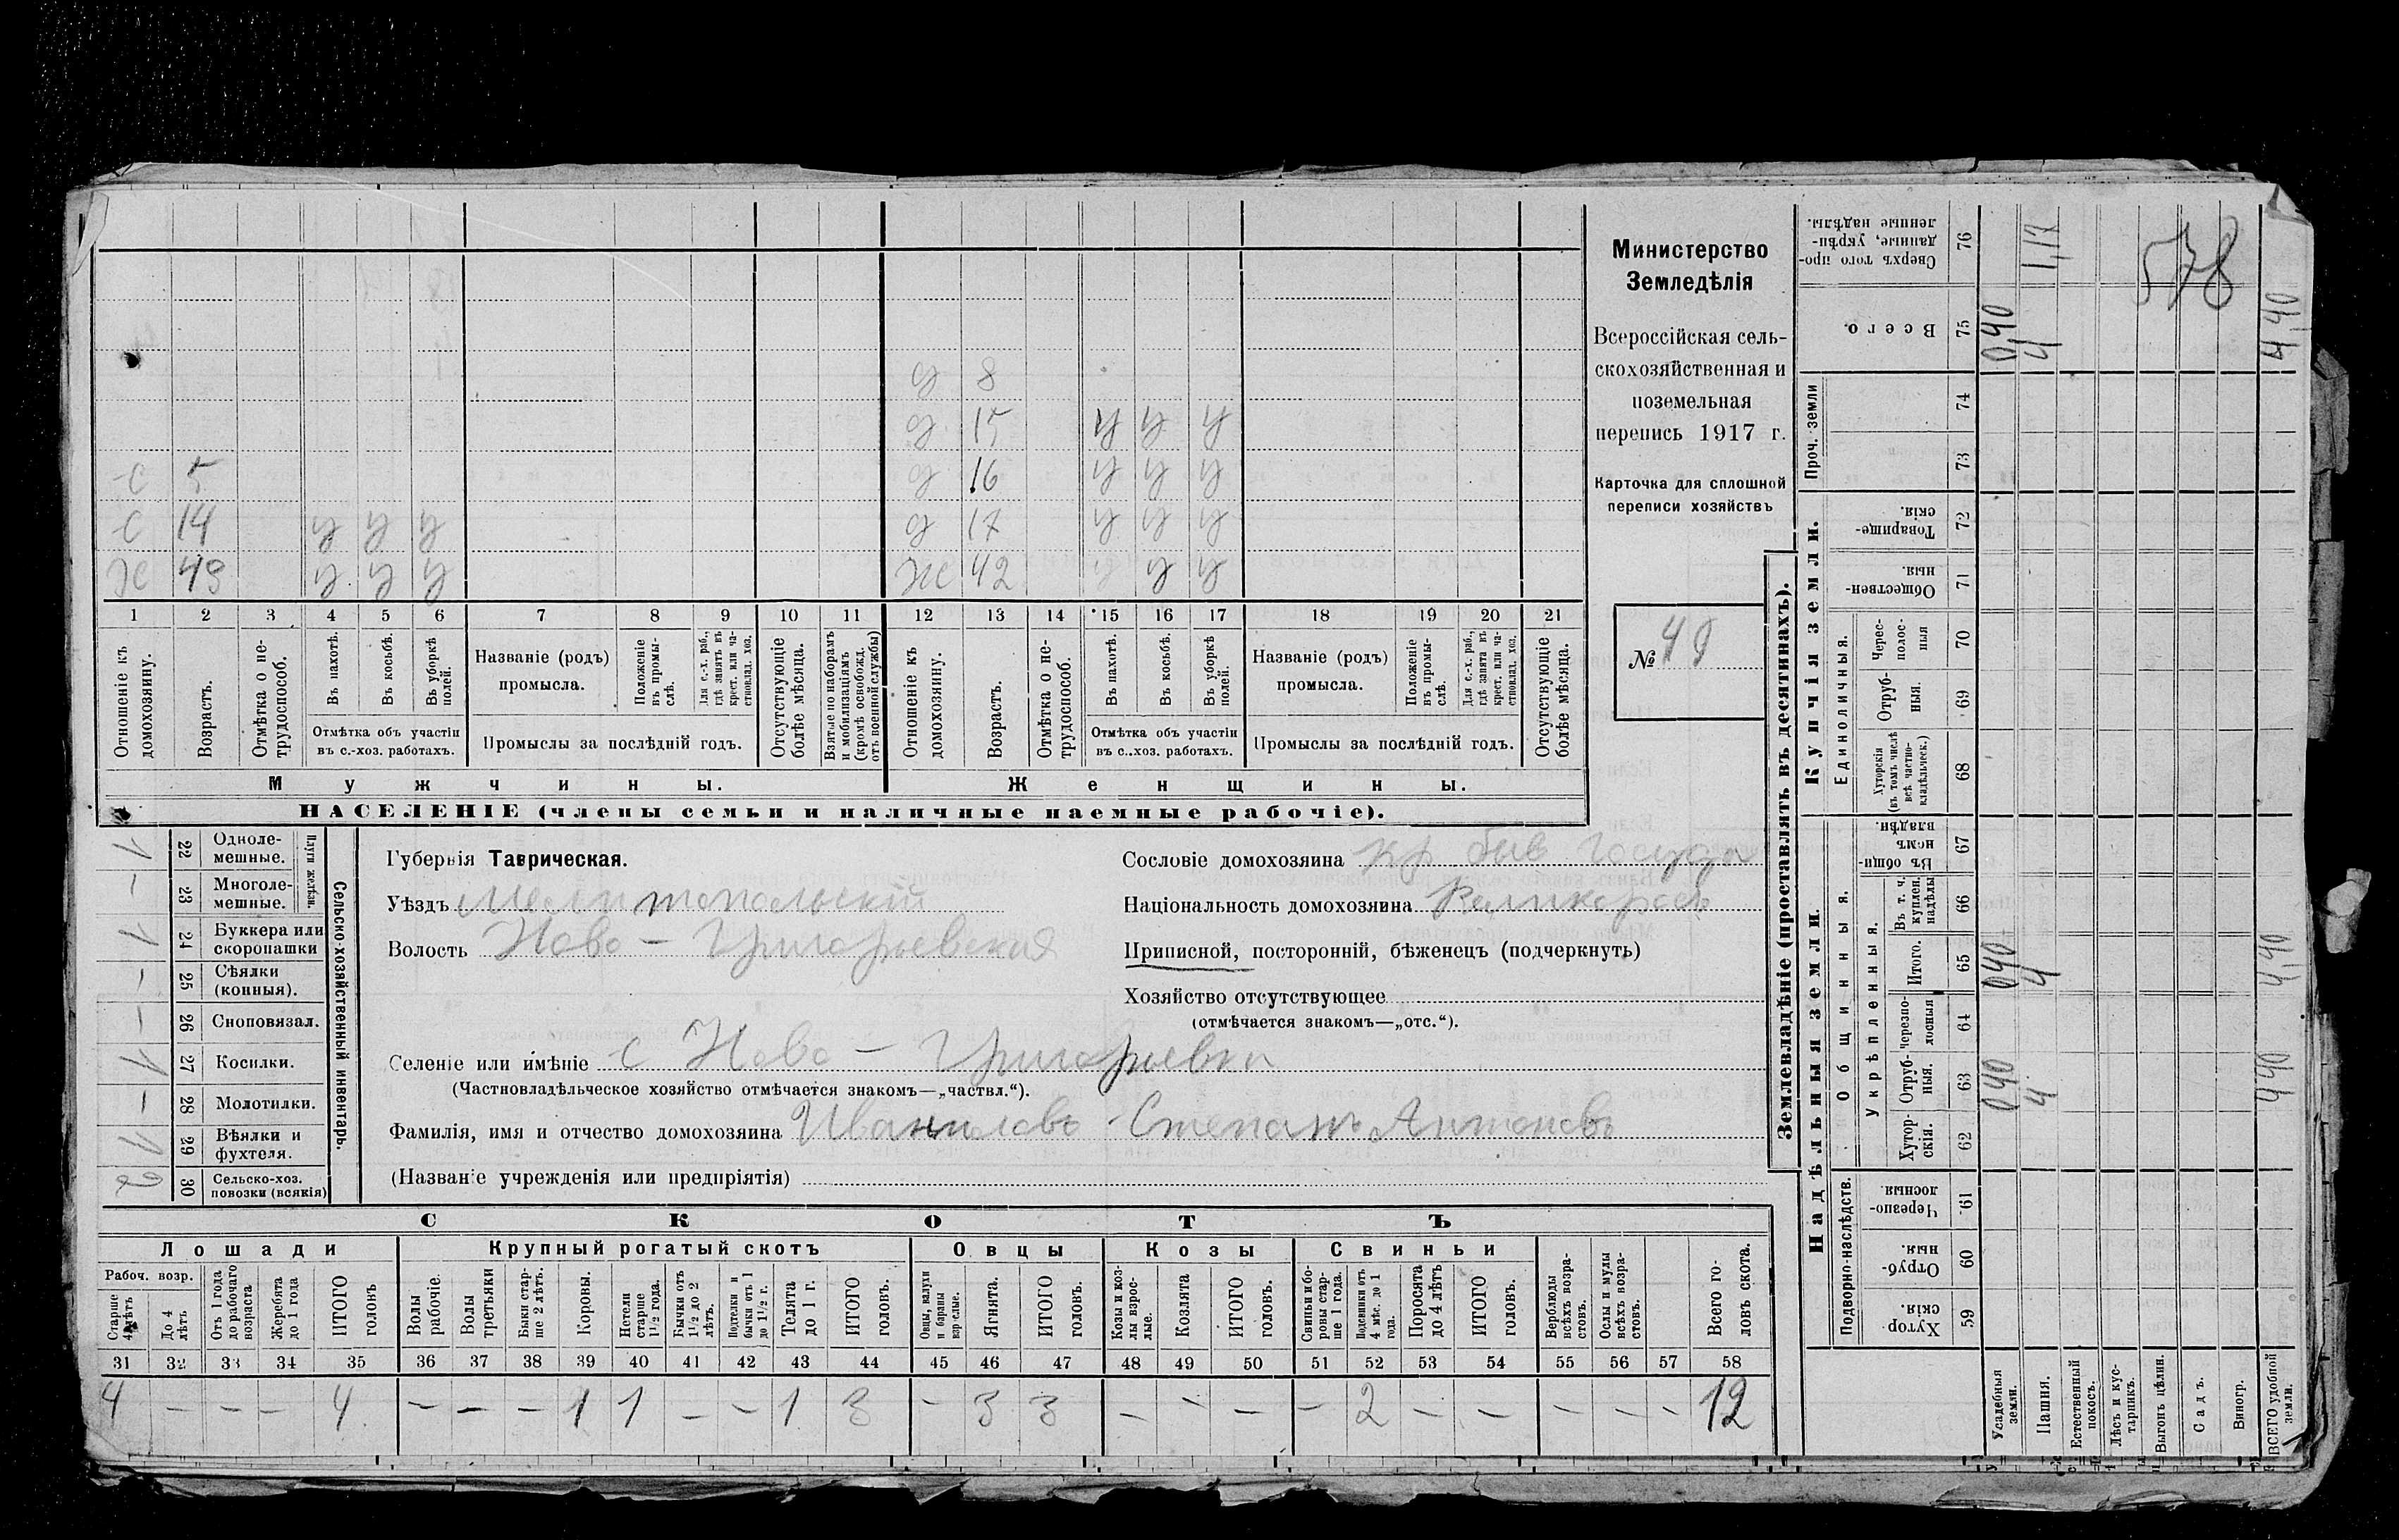 с 8
д 15 у у у
с 5 д 16 у у у
с 14 у у у д 17 у у у
Х 43 у у у Ж 42 у у у
1 2 3 4 5 6 7 8 9 10 11 12 13 14 15 16 17 18 19 20 21
Отношеніе къ домохозяину.
Возрастъ.
Отмѣтка о нетрудоспособ.
Въ пахотѣ.
Въ косьбѣ.
Въ уборкѣ полей.
Отмѣтка объ участіи
въ с.-хоз. работахъ.
Названіе (родъ)
промысла.
Положеніе въ промыслѣ.
Для с.-х. раб., гдѣ занятъ въ крест. или частновлад. хоз.
Промыслы за послѣдній годъ.
Отсутствующіе болѣе мѣсяца.
Взятые по наборамъ и мобилизаціямъ (кромѣ освобожд. отъ военной службы)
Отношеніе къ домохозяину.
Возрастъ.
Отмѣтка о нетрудоспособ.
Въ пахотѣ.
Въ косьбѣ.
Въ уборкѣ полей.
Отмѣтка объ участіи
въ с.-хоз. работахъ.
Названіе (родъ)
промысла.
Положеніе въ промыслѣ.
Для с.-х. раб., гдѣ занята въ крест. или частновлад. хоз.
Промыслы за послѣдній годъ.
Отсутствующіе болѣе мѣсяца.
Мужчины. Женщины.
НАСЕЛЕНІЕ (члены семьи и наличные наемные рабочіе).
Министерство
Земледѣлія
Всероссійская сель-
скохозяйственная и
поземельная
перепись 1917 г.
Карточка для сплошной
переписи хозяйствъ
№ 49
Сельско-хозяйственный инвентарь.
Плуги желѣзн.
1 22 Одноле-
мешные.
— 23 Многоле-
мешные.
1 24 Буккера или
скоропашки
— 25 Сѣялки
(конныя).
— 26 Сноповязал.
1 27 Косилки.
— 28 Молотилки.
1 29 Вѣялки и
фухтеля.
2 30 Сельско-хоз.
повозки (всякія)
Губернія Таврическая.
Уѣздъ Мелитопольскій
Волость Ново-Григорьевская
Селеніе или имѣніе с Ново-Григорьевка
(Частновладѣльческое хозяйство отмѣчается знакомъ—„частвл.“).
Фамилія, имя и отчество домохозяина Иваниловъ Степанъ Антоновъ
(Названіе учрежденія или предпріятія)
Сословіе домохозяина кр быв госуд
Національность домохозяина Великороссъ
Приписной, посторонній, бѣженецъ (подчеркнуть)
Хозяйство отсутствующее
(отмѣчается знакомъ—„отс.“).
СКОТЪ
Лошади Крупный рогатый скотъ Овцы Козы Свиньи
Рабоч. возр.
Старше 4 лѣтъ
До 4 лѣтъ
Отъ 1 года до рабочаго возраста
Жеребята до 1 года
ИТОГО головъ
Волы рабочіе.
Волы третьяки
Быки старше 2 лѣтъ.
Коровы.
Нетели старше 1½ года.
Бычки отъ 1½ до 2 лѣтъ.
Подтелки и бычки отъ 1 до 1½ г.
Телята до 1 г.
ИТОГО головъ.
Овцы, валухи и бараны взрослые.
Ягнята.
ИТОГО головъ.
Козы и козлы взрослые.
Козлята
ИТОГО головъ.
Свиньи и боровы старше 1 года.
Подсвинки отъ 4 мѣс. до 1 года.
Поросята до 4 лѣтъ
ИТОГО головъ.
Верблюды всѣхъ возрастовъ.
Ослы и мулы всѣхъ возрастовъ.
Всего головъ скота.
31 32 33 34 35 36 37 38 39 40 41 42 43 44 45 46 47 48 49 50 51 52 53 54 55 56 57 58
4 — — — 4 — — — 1 1 — — 1 3 — 3 3 — — — — 2 — — — — — 12
Землевладѣніе (проставлять въ десятинахъ).
Купчія земли.
Надѣльныя земли.
Сверхъ того проданные, укрѣпленные надѣлы. 76 1,17
578
Всего. 75 0,40 4 4,40
Проч. земли 74
73
Товарищескія. 72
Общественныя. 71
Единоличныя.
Черес-полосныя 70
Отрубныя. 69
Хуторскія (въ томъ числѣ всѣ частновладѣльческ.) 68
Общинныя.
Въ общинномъ владѣн. 67
Укрѣпленныя.
Въ т. ч. куплен. надѣлы 66
Итого. 65 040 4 4,40
Черезполосныя 64
Отрубныя. 63 040 4 440
Хуторскія. 62
Подворно-наслѣдств.
Черезполосныя 61
Отрубныя. 60
Хуторскія 59
Усадебныя земли.
Пашня.
Естественный покосъ.
Лѣсъ и кустарникъ.
Выгонъ цѣлин.
Садъ.
Виногр.
ВСЕГО удобной земли.